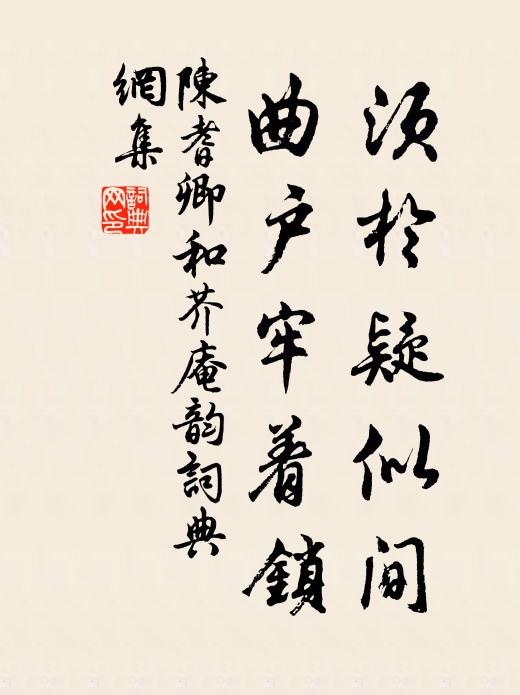 須於疑似間
曲户牢着鎖
陳耆卿和芥庵韵詞典
網集
詞典
网印